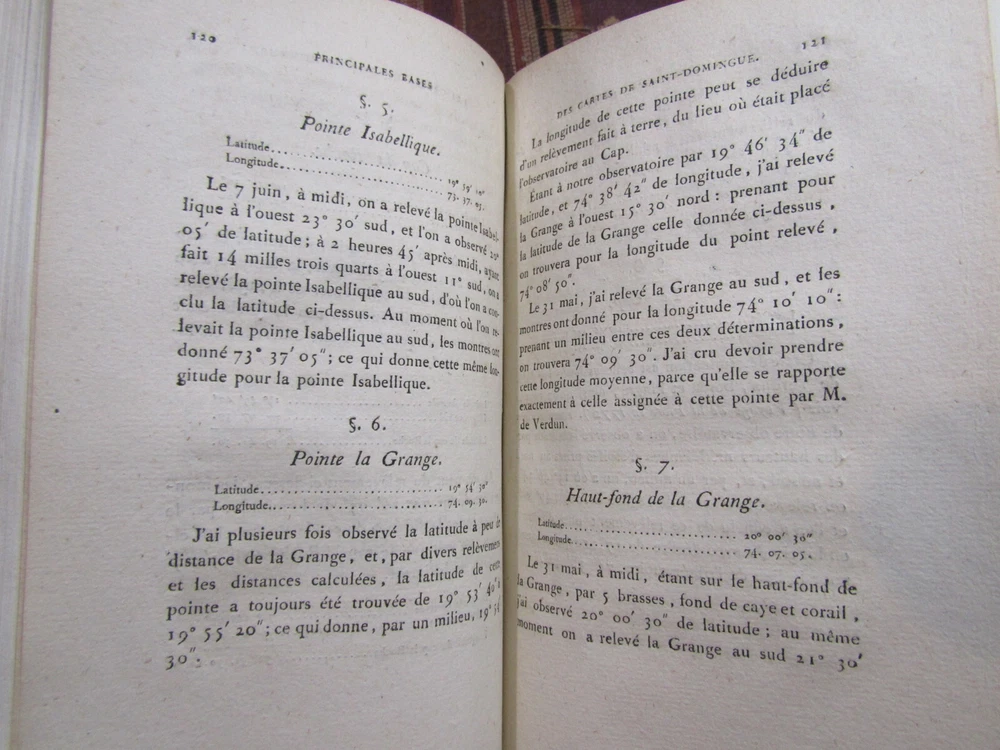 120
PRINCIPALES BASES
§. 5.
Pointe Isabellique.
Latitude........................ 19° 59′ 10″
Longitude...................... 73. 37. 05.
Le 7 juin, à midi, on a relevé la pointe Isabel-
lique à l'ouest 23° 30′ sud, et l'on a observé 20°
05′ de latitude; à 2 heures 45′ après midi, ayant
fait 14 milles trois quarts à l'ouest 11° sud, on a
relevé la pointe Isabellique au sud, d'où l'on a con-
clu la latitude ci-dessus. Au moment où l'on re-
levait la pointe Isabellique au sud, les montres ont
donné 73° 37′ 05″; ce qui donne cette même lon-
gitude pour la pointe Isabellique.
§. 6.
Pointe la Grange.
Latitude........................ 19° 54′ 30″
Longitude...................... 74. 09. 30.
J'ai plusieurs fois observé la latitude à peu de
distance de la Grange, et, par divers relèvemens
et les distances calculées, la latitude de cette
pointe a toujours été trouvée de 19° 53′ 40″ à
19° 55′ 20″; ce qui donne, par un milieu, 19° 54′
30″.
121
DES CARTES DE SAINT-DOMINGUE.
La longitude de cette pointe peut se déduire
d'un relèvement fait à terre, du lieu où était placé
l'observatoire au Cap.
Étant à notre observatoire par 19° 46′ 34″ de
latitude, et 74° 38′ 42″ de longitude, j'ai relevé
la Grange à l'ouest 15° 30′ nord: prenant pour
la latitude de la Grange celle donnée ci-dessus,
on trouvera pour la longitude du point relevé,
74° 08′ 50″.
Le 31 mai, j'ai relevé la Grange au sud, et les
montres ont donné pour la longitude 74° 10′ 10″:
prenant un milieu entre ces deux déterminations,
on trouvera 74° 09′ 30″. J'ai cru devoir prendre
cette longitude moyenne, parce qu'elle se rapporte
exactement à celle assignée à cette pointe par M.
de Verdun.
§. 7.
Haut-fond de la Grange.
Latitude........................ 20° 00′ 30″
Longitude...................... 74. 07. 05.
Le 31 mai, à midi, étant sur le haut-fond de
la Grange, par 5 brasses, fond de caye et corail,
j'ai observé 20° 00′ 30″ de latitude; au même
moment on a relevé la Grange au sud 21° 30′